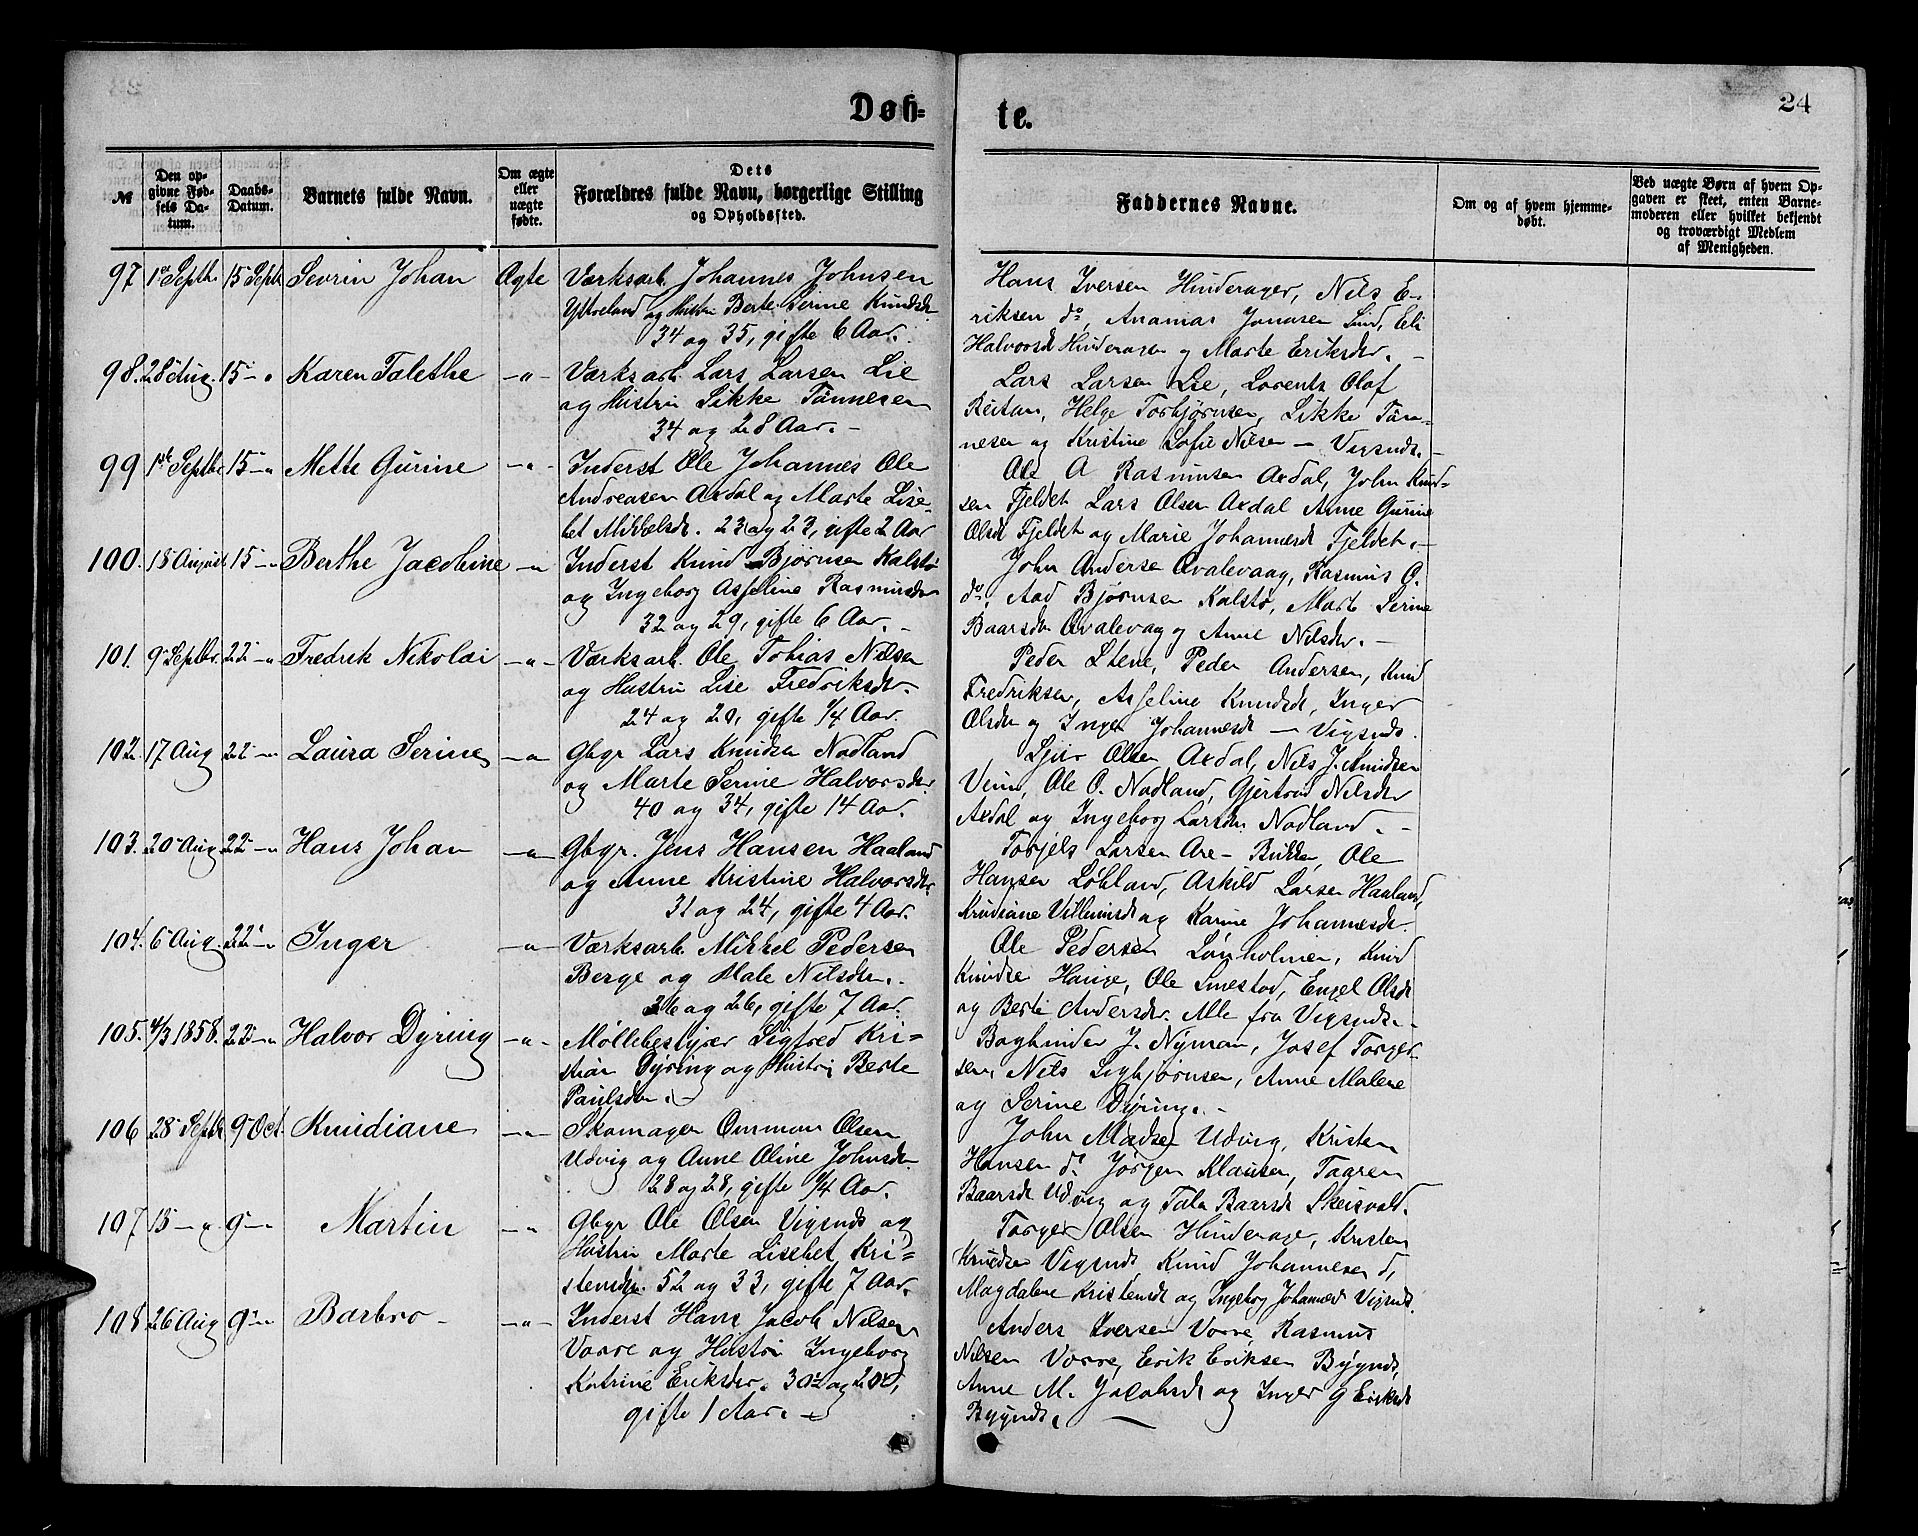 Døb-
te.
24
№
Den opgivne Fødsels Datum.
Daabs-Datum.
Barnets fulde Navn.
Om ægte eller uægte fødte.
Dets Forældres fulde Navn, borgerlige Stilling og Opholdssted.
Faddernes Navne.
Om og af hvem hjemmedøbt.
Ved uægte Børn af hvem Opgaven er skeet, enten Barnemoderen eller hvilket bekjendt og troværdigt Medlem af Menigheden.
97 1ste Septbr. 15 Septb Sevrin Johan Ægte Værksarb. Johannes Johnsen
og Hustru Berte Serine Knudsdtr
34 og 35, gifte 6 Aar.
Hans Iversen Hinderager, Nils E-
riksen do, Jonasen Lund, Eli
Halvorsdt Hinderager og Marte Eriksdtr. –
98. 28 Aug. 15 – " Karen Talethe – " – Værksarb. Lars Larsen Lie
og Hustru Sikke Tønnesen
34 og 28 Aar. –
Lars Larsen Lie, Lorents Olaf
Reitan, Helge Torbjørnsen, Sikke Tøn-
nesen og Kristine Sofie Nilsen – Vigsnds. –
99 1ste Septbr 15 – " Mette Gurine – " – Inderst Ole Johannes Ole
Andreasen Axdal og Marte Lise-
bet Mikkelsdt. 23 og 23, gifte 2 Aar
Ole A Rasmusen Axdal, John Knud-
sen Fjeldet Lars Olsen Axdal Anne Gurine
Olsdt Fjeldet og Marie Johannesdt Fjeldet. –
100. 18 August 15 – " Berthe Jacobine – " Inderst Knud Bjørnsen Kalstø
og Ingeborg Asseline Rasmusdtr
32 og 29, gifte 6 Aar. –
John Andersen Qvalevaag, Rasmus O.
do, Aad Bjørnsen Kalstø, Marte Serine
Baarsdtr Qvalevag og Anne Nilsdtr. –
101. 9 Septbr. 22 – " Fredrik Nikolai – " – Værksarb. Ole Tobias Nilsen
og Hustru Lise Fredriksdtr.
24 og 20, gifte 1/4 Aar.
Peder Stene, Peder Andersen, Knud
Fredriksen, Asseline Knudsdt, Inger
Olsdtr og Inger Johannesdt – Vigsnds.
102. 17 Aug 22 – " Laura Serine – " Gbgr Lars Knudsen Nodland
og Marte Serine Halvorsdtr
40 og 34, gifte 14 Aar.
Sjur Olsen Axdal, Nils J. Knudsen
Ole O. Nodland, Gjertrud Nilsdtr
Axdal og Ingeborg Larsdtr Nodland. –
103. 20 Aug 22 – " Hans Johan – " – Gbgr. Jens Hansen Haaland
og Anne Kristine Halvorsdtr.
31 og 24, gifte 4 Aar.
Torjels Larsen Are – Bukken, Ole
Hansen Løkland, Askild Larsen Haaland,
Villumsdt og Karine Johannesdt.
104. 6 Aug. 22 – " Inger – " – Værksarb. Mikkel Pedersen
Berge og Male Nilsdtr.
36 og 26, gifte 7 Aar.
Ole Pedersen Lønholmen, Knud
Knudsen Hauge, Ole Smestad, Engel Olsdt
og Berte Andersdtr. Alle fra Vigsnds. –
105. 4/3 1858. 22 – " Halvor Dyring – " – Møllebestyrer Sigfred Kri-
stian Dyring og Hustru Berte
Paulsdtr. –
Bogbinder J. Nyman, Josef Torger-
sen, Nils Sigbjørnsen, Anne Malene
og Serine Dyring. –
106 28 Septbr 9 Oct. Knudiane – " – Skomager Ommon Olsen
Udvig og Anne Oline Johnsdtr.
28 og 28, gifte 1/4 Aar.
John Madsen Udvig, Kristen
Hansen do. Jørgen Klausen, Taaren
Baarsdt Udvig og Tala Baarsdt Skeisvold.
107 15 – " 9 – " Martin – " Gbgr Ole Olsen Vigsnds og
Hustru Marte Lisebet Kri-
stensdtr. 52 og 33, gifte 7 Aar.
Torger Olsen Hinderage, Kristen
Knudsen Vigsnds, Knud Johannesen d,
Magdalene Kristensdt og Ingeborg Johannesdt Vigsnds.
108 26 Aug 9 – " Barbro – – " – Inderst Hans Jacob Nilsen
Vorre og Hustru Ingeborg
Katrine Eriksdtr. 30 og 20,
gifte 1 Aar. –
Anders Iversen Vorre, Rasmus
Nilsen Vorre, Erik Eriksen Bygnds,
Anne M. Jacobsdt og Inger G Eriksdt
Bygnds. –